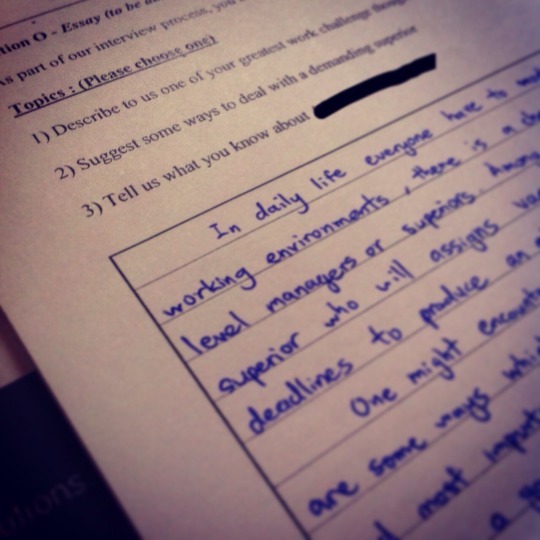 tion O - Essay (to be
As part of our interview process, you
Topics : (Please choose one)
1) Describe to us one of your greatest work challenge
2) Suggest some ways to deal with a demanding superior
3) Tell us what you know about
In daily life everyone have to
working environments, there is a
level managers or superiors. Among
superior who will assigns
deadlines to produce an
One might
are some ways
most
a
utions